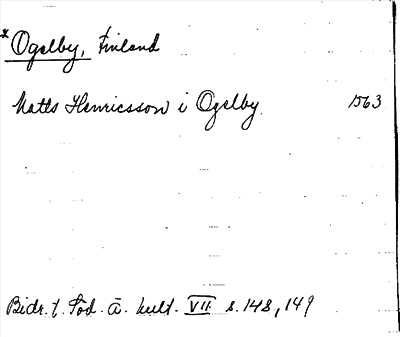 *Ogelby, Finland
Matts Henricsson i Ogelby 1563
Bidr. t. Söd. Ö. kult. VII s. 148, 149